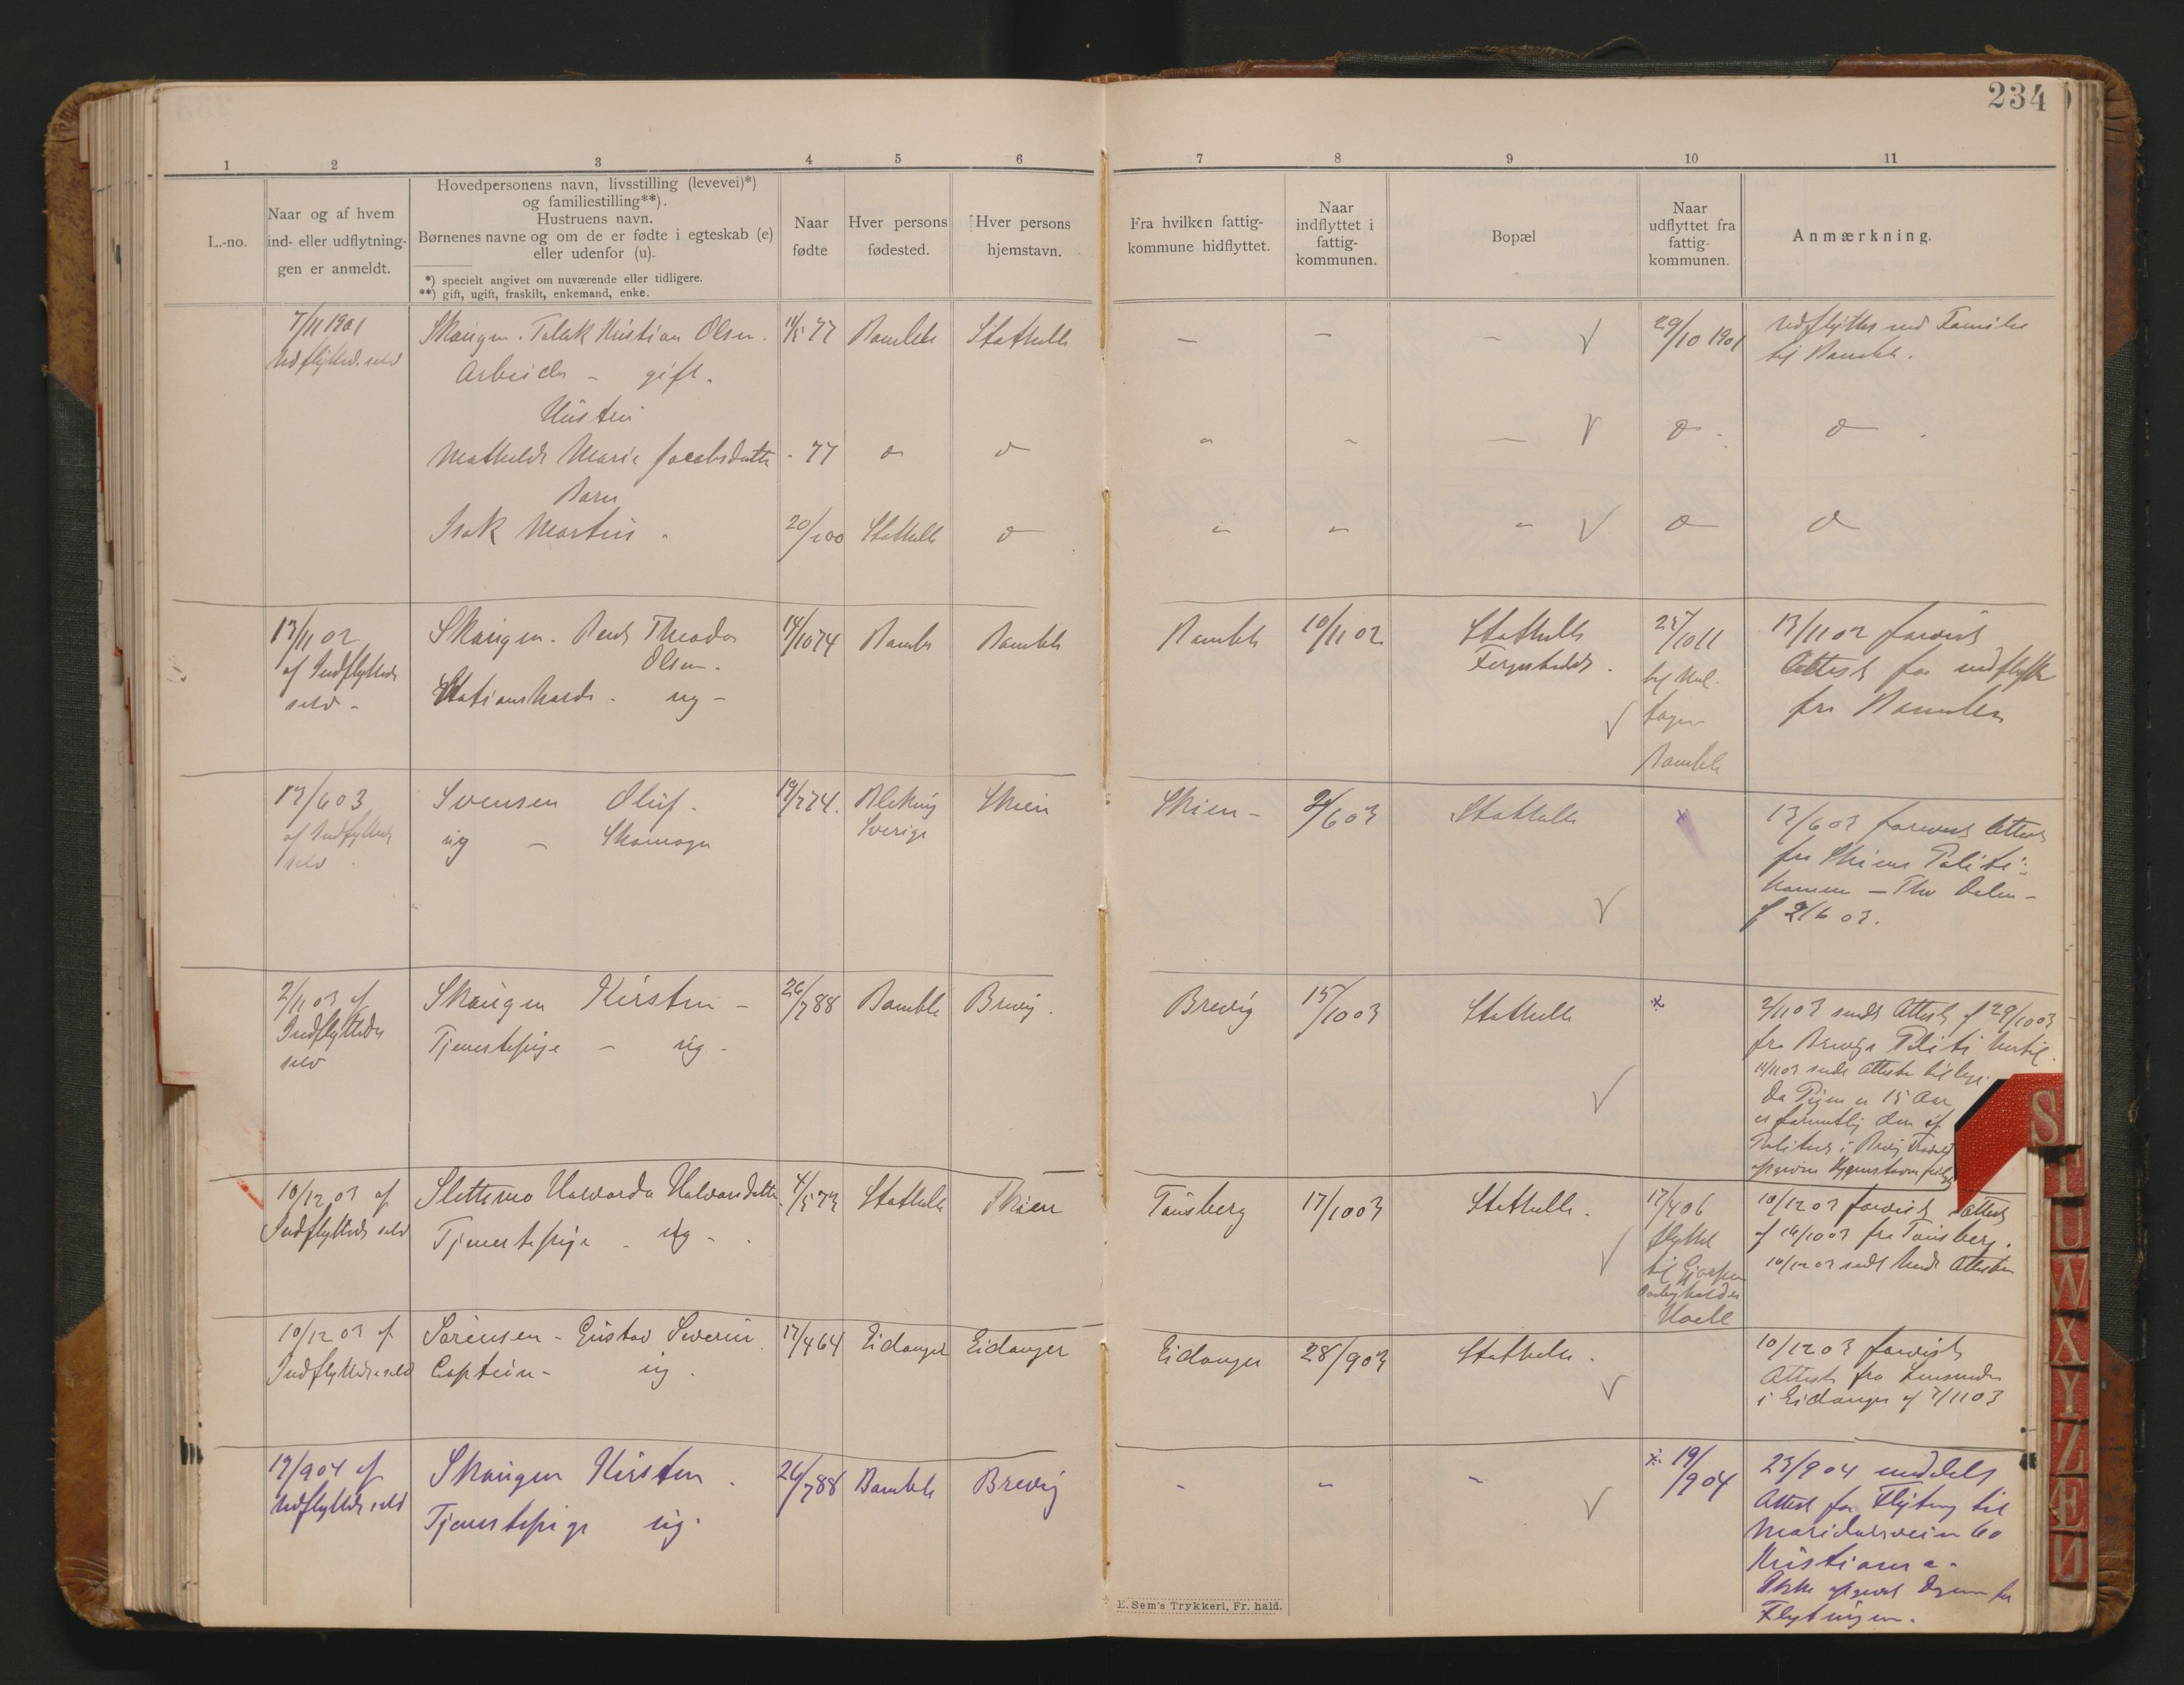 234
1 2 3 4 5 6 7 8 9 10 11
L.-no.
Naar og af hvem
ind- eller udflytnin-
gen er anmeldt.
Hovedpersonens navn, livsstilling (levevei)*)
og familiestilling**).
Hustruens navn.
Børnenes navne og om de er fødte i egteskab (e)
eller udenfor (u).
*) specielt angivet om nuværende eller tidligere.
**) gift, ugift, fraskilt, enkemand, enke.
Naar
fødte
Hver persons
fødested.
Hver persons
hjemstavn.
Fra hvilken fattig-
kommune hidflyttet.
Naar
indflyttet i
fattig-
kommunen.
Bopæl
Naar
udflyttet fra
fattig-
kommunen.
Anmærkning.
7/11 1901
Udflytted. selv
Skaugen. Talak Kristian Olsen.
Arbeider - gift.
77 Bamble Stathelle
- - - √
29/10 1901
Udflyttet med Familie
til Bamble.
Hustru
Mathilde Marie Jacobsdatter - 77
Barn
Isak Martin.
Stathelle
13/11 02
af Indflyttede
selv -
Skaugen. Bent Theodor
Olsen.
Stationsholder. ug -
14/10 74 Bamble Bamble
Bamble 10/11 02 Stathelle
Fergestedet.
til
Bamble
13/11 02 forevist
Attest for indflytte
fra Bamble
13/6 03
af Indflyttede
selv.
Svensen Oluf.
ug - Skomager
19/7 74. Bleking
Sverige
Skien
Skien - 2/6 03 Stathelle
x
13/6 03 forevist Attest
fra Skiens Politi-
kammer - Thv Dalen -
af 2/6 03.
2/11 03 af
Indflyttede
selv
Skaugen Kirsten -
Tjenestepige - ug -
26/7 88 Bamble Brevig.
Brevig 15/10 03 Stathelle
x
2/11 03 sendt Attest af 29/10 03
fra Brevigs Politi hertil.
11/11 03 sendt Attesten tilbage.
Da Pigen er 15 Aar
Politiet i Brevig
opgivne Hjemstavn
10/12 03 af
Indflyttede selv
Slettemo Halvarda Halvorsdatter.
Tjenestepige - ug -
4/5 73 Stathelle Skien
Tønsberg 17/10 03 Stathelle.
17/4 06
flyttet
til Gjerpen
10/12 03 forevist Attest
af 16/10 03 fra Tønsberg.
10/12 03 sendt hende Attesten
10/12 03 af
Indflyttede selv
Sørensen - Gustav Severin.
Captein - ug.
17/4 64 Eidanger Eidanger
Eidanger 28/9 03 Stathelle.
10/12 03 forevist
Attest fra Lensmanden
i Eidanger af 7/11 03
19/9 04 af
Udflyttede selv
Skaugen Kirsten.
Tjenestepige ug.
26/7 88 Bamble Brevig
- - -
x. 19/9 04
23/9 04 meddelt
Attest for Flytning til
Maridalsveien 60
Kristiania.
Ikke opgivet Dagen for
Flytningen.
E. Sem's Trykkeri, Fr. hald.
S
T
U
W
X
Y
Z
Æ